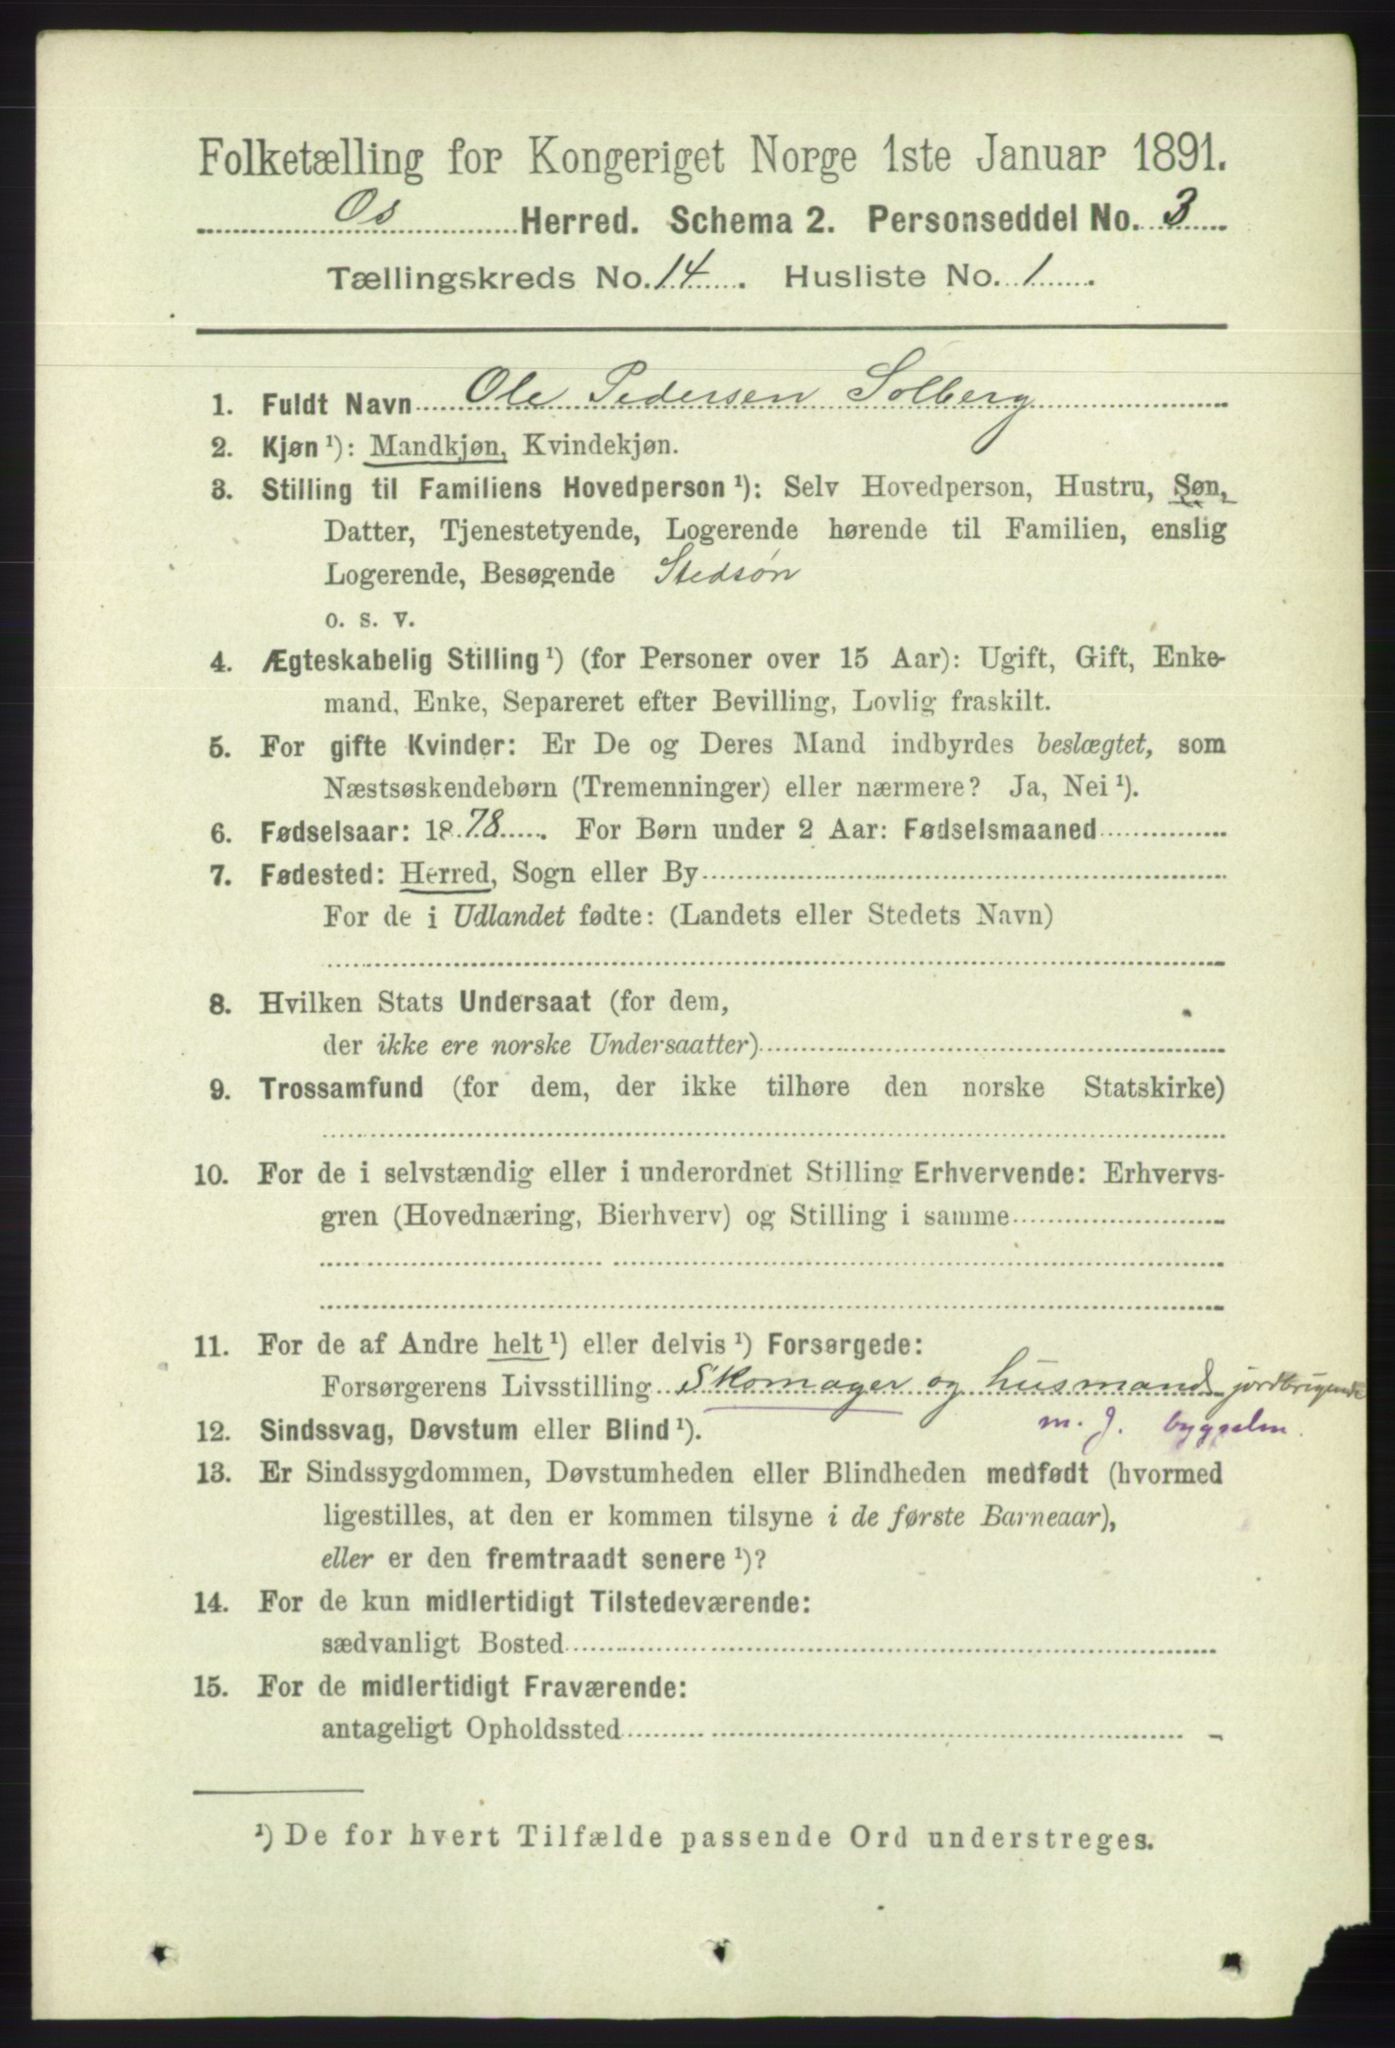 Folketælling for Kongeriget Norge 1ste Januar 1891.
Os Herred. Schema 2. Personseddel No. 3
Tællingskreds No. 14. Husliste No. 1.
1. Fuldt Navn Ole Pedersen Solberg
2. Kjøn ¹): Mandkjøn, Kvindekjøn.
3. Stilling til Familiens Hovedperson ¹): Selv Hovedperson, Hustru, Søn,
Datter, Tjenestetyende, Logerende hørende til Familien, enslig
Logerende, Besøgende Stedsøn
o. s. v.
4. Ægteskabelig Stilling ¹) (for Personer over 15 Aar): Ugift, Gift, Enke-
mand, Enke, Separeret efter Bevilling, Lovlig fraskilt.
5. For gifte Kvinder: Er De og Deres Mand indbyrdes beslægtet, som
Næstsøskendebørn (Tremenninger) eller nærmere? Ja, Nei ¹).
6. Fødselsaar: 1878. For Børn under 2 Aar: Fødselsmaaned
7. Fødested: Herred, Sogn eller By
For de i Udlandet fødte: (Landets eller Stedets Navn)
8. Hvilken Stats Undersaat (for dem,
der ikke ere norske Undersaatter)
9. Trossamfund (for dem, der ikke tilhøre den norske Statskirke)
10. For de i selvstændig eller i underordnet Stilling Erhvervende: Erhvervs-
gren (Hovednæring, Bierhverv) og Stilling i samme
11. For de af Andre helt ¹) eller delvis ¹) Forsørgede:
Forsørgerens Livsstilling Skomager og husmand jordbrugende
m. J.
12. Sindssvag, Døvstum eller Blind ¹).
13. Er Sindssygdommen, Døvstumheden eller Blindheden medfødt (hvormed
ligestilles, at den er kommen tilsyne i de første Barneaar),
eller er den fremtraadt senere ¹)?
14. For de kun midlertidigt Tilstedeværende:
sædvanligt Bosted
15. For de midlertidigt Fraværende:
antageligt Opholdssted
¹) De for hvert Tilfælde passende Ord understreges.